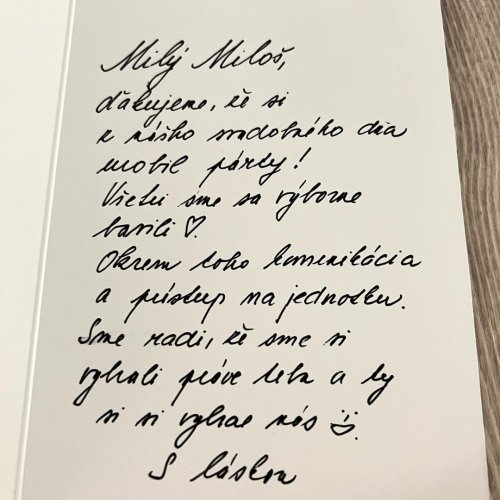 Milý Miloš,
ďakujeme, že si
z nášho svadobného dňa
urobil párty!
Všetci sme sa výborne
bavili ♡.
Okrem toho komunikácia
a prístup na jednotku.
Sme radi, že sme si
vybrali práve teba a ty
si si vybral nás
S láskou